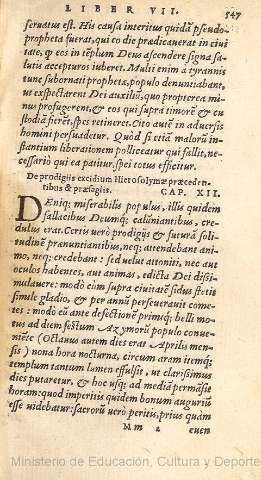 LIBER VII. 547
seruatus est. His causa interitus quidā pseudo-
propheta fuerat, qui eo die prædicauerat in ciui
tate, ꝙ eos in tēplum Deus ascendere signa sa-
lutis accepturos iuberet. Multi enim a tyrannis
tunc subornati prophetæ, populo denuntiabant,
ut exspectarent Dei auxiliū, quo propterea mi-
nus profugerent, & eos qui supra timorē & cu
stodiā fuissēt, spes retineret. Cito autē in aduersis
homini persuadetur. Quòd si etiā malorū in-
stantium liberationem polliceatur qui fallit, ne-
cessariò qui ea patitur, spei totus efficitur.
De prodigiis excidium Hierosolymæ præceden-
tibus & præsagiis. CAP. XII.
DEniq; miserabilis populus, illis quidem
fallacibus Deumq; calūniantibus, cre-
dulus erat. Certis verò prodigijs & futurā solitu-
dinē prænuntiantibus, neq; attendebant ani-
mo, neq; credebant: sed uelut attoniti, nec aut
oculos habentes, aut animas, edicta Dei dissi-
mulauere: modò cùm supra ciuitatē sidus stetit
simile gladio, & per annū perseuerauit come-
tes: modò cū ante defectionē primūq; belli mo-
tus ad diem festum Azymorū populo conue-
niēte (Octauus autem dies erat Aprilis men-
sis) nona hora nocturna, circum aram itemq;
templum tantum lumen effulsit, ut clarissimus
dies putaretur, & hoc usq; ad mediā permāsit
horam: quod imperitis quidem bonum augurium
esse uidebatur: sacrorū verò peritis, prius quam
Mm 2 euen
Ministerio de Educación, Cultura y Deporte